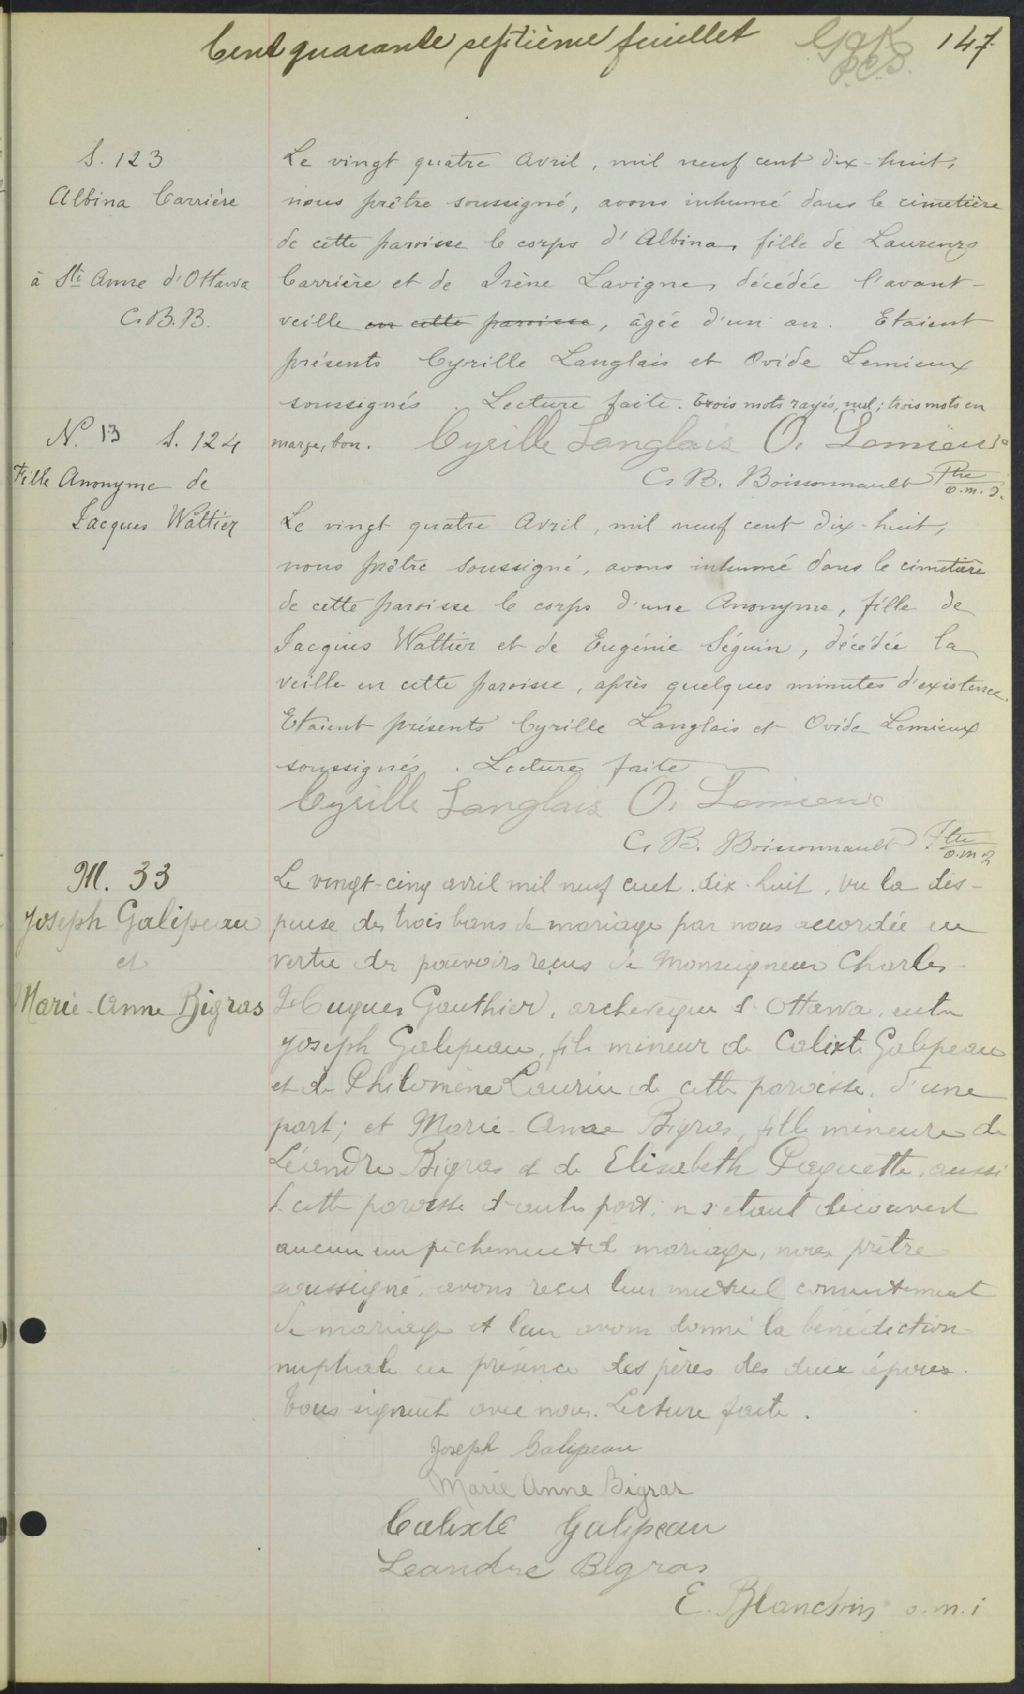 Cent quarante septième feuillet 147
S. 123
Albina Carrière
à Ste Anne d'Ottawa
C.B.B.
Le vingt quatre Avril, mil neuf cent dix-huit,
nous prêtre soussigné, avons inhumé dans le cimetière
de cette paroisse le corps d'Albina, fille de Laurenzo
Carrière et de Irène Lavigne, décédée l'avant-
veille en cette paroisse, âgée d'un an. Etaient
présents Cyrille Langlais et Ovide Lemieux
soussignés. Lecture faite. Trois mots rayés, nul; trois mots en
marge, bon. Cyrille Langlais O. Lemieux
C. B. Boissonnault Ptre
o.m.i.
N. 13 S. 124
Fille Anonyme de
Jacques Wattier
Le vingt quatre Avril, mil neuf cent dix-huit,
nous prêtre soussigné, avons inhumé dans le cimetière
de cette paroisse le corps d'une Anonyme, fille de
Jacques Wattier et de Eugénie Séguin, décédée la
veille en cette paroisse, après quelques minutes d'existence.
Etaient présents Cyrille Langlais et Ovide Lemieux
soussignés. Lecture faite
Cyrille Langlais O. Lemieux
C. B. Boissonnault Ptre
o.m.i.
M. 33
Joseph Galipeau
et
Marie-Anne Bigras
Le vingt-cinq avril mil neuf cent dix-huit, vu la dis-
pense des trois bans de mariage par nous accordée en
vertu des pouvoirs reçus de Monseigneur Charles-
Hugues Gauthier, archevêque d'Ottawa, entre
Joseph Galipeau, fils mineur de Calixte Galipeau
et de Philomène Laurin de cette paroisse, d'une
part; et Marie-Anne Bigras, fille mineure de
Léandre Bigras et de Elisabeth Paquette, aussi
de cette paroisse d'autre part; ne s'étant découvert
aucun empêchement de mariage, nous prêtre
soussigné, avons reçu leur mutuel consentement
de mariage et leur avons donné la bénédiction
nuptiale en présence des pères des deux époux.
Tous signent avec nous. Lecture faite.
Joseph Galipeau
Marie Anne Bigras
Calixte Galipeau
Leandre Bigras
E. Blanchin o.m.i